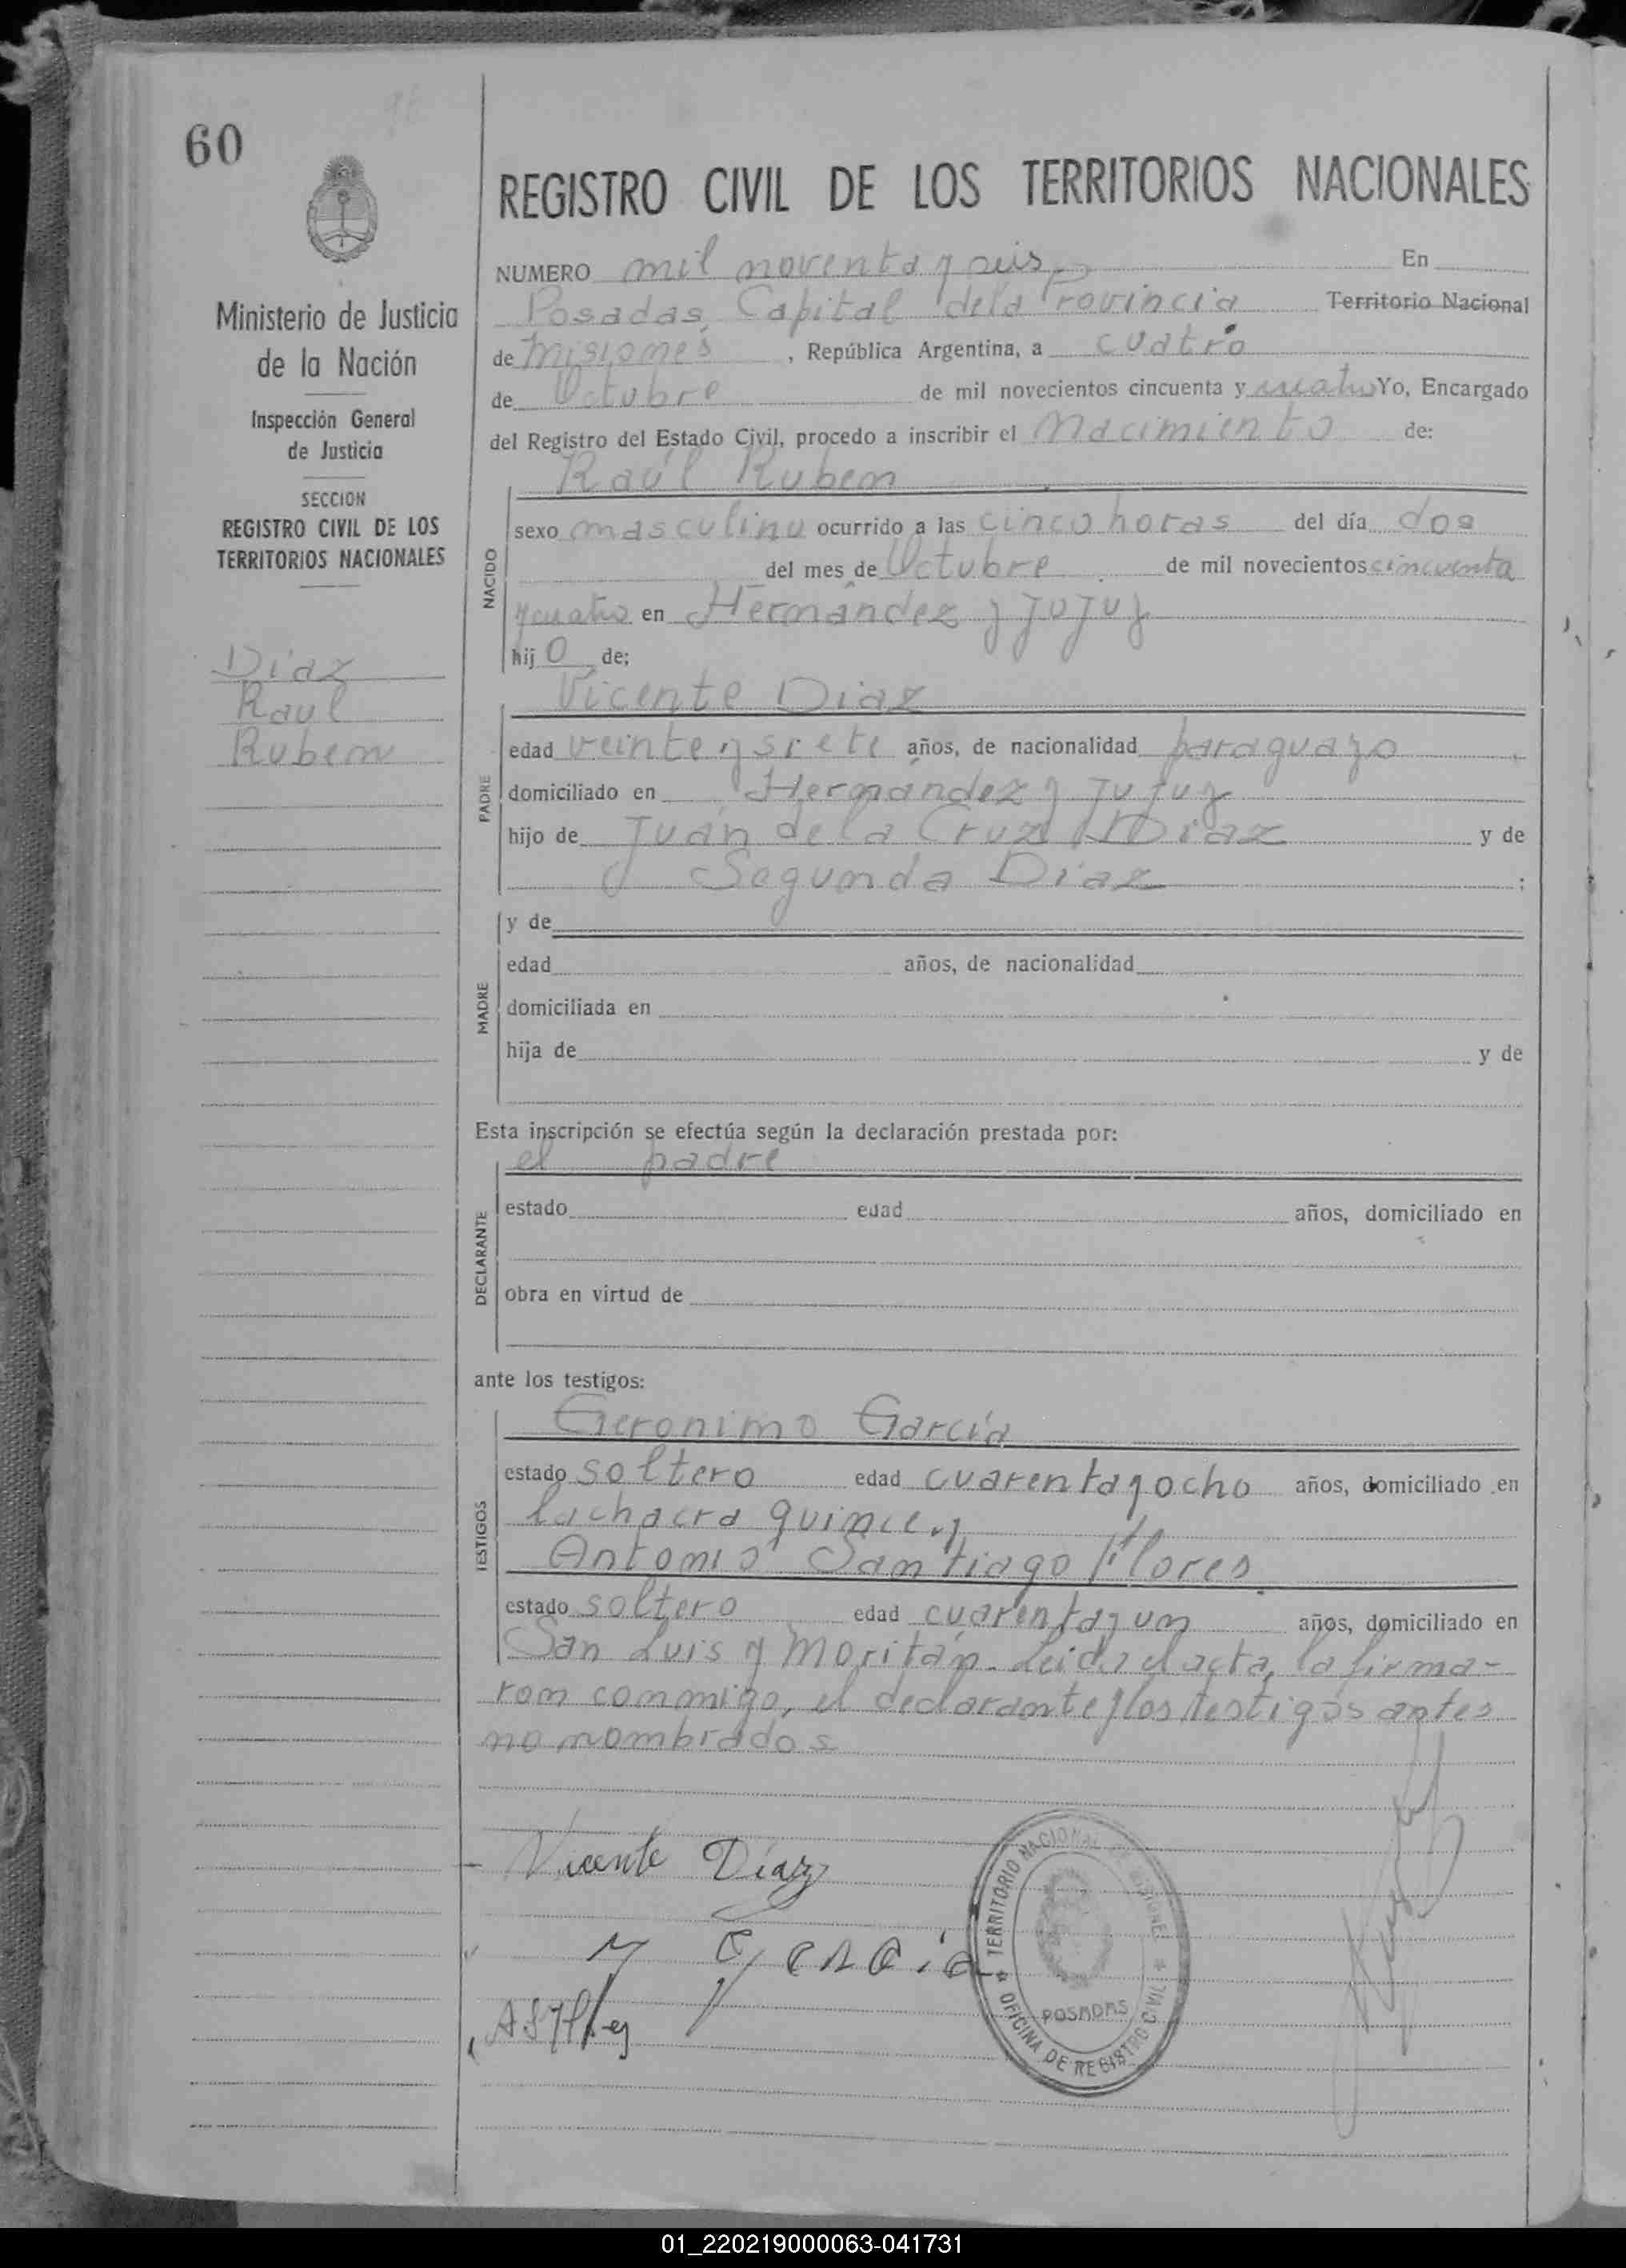 60
REGISTRO CIVIL DE LOS TERRITORIOS NACIONALES
NUMERO mil noventa y seis En
Posadas, Capital de la Provincia Territorio Nacional
de Misiones, República Argentina, a cuatro
de Octubre de mil novecientos cincuenta y cuatro Yo, Encargado
del Registro del Estado Civil, procedo a inscribir el Nacimiento de:
Raúl Ruben
NACIDO
sexo masculino ocurrido a las cinco horas del día dos
del mes de Octubre de mil novecientos cincuenta
y cuatro en Hernández y Jujuy
hijo de;
Vicente Diaz
PADRE
edad veinte y siete años, de nacionalidad paraguayo,
domiciliado en Hernández y Jujuy
hijo de Juan de la Cruz Diaz y de
Segunda Diaz;
MADRE
y de
edad años, de nacionalidad
domiciliada en
hija de y de
Esta inscripción se efectúa según la declaración prestada por:
el padre
DECLARANTE
estado edad años, domiciliado en
obra en virtud de
ante los testigos:
Geronimo García
TESTIGOS
estado soltero edad cuarenta y ocho años, domiciliado en
la chacra quince y
Antonio Santiago Flores
estado soltero edad cuarenta y un años, domiciliado en
San Luis y Moritán. Leida el acta, la firma-
ron conmigo, el declarante y los testigos antes
no nombrados
Ministerio de Justicia
de la Nación
Inspección General
de Justicia
SECCION
REGISTRO CIVIL DE LOS
TERRITORIOS NACIONALES
Diaz
Raul
Ruben
Vicente Díaz
TERRITORIO NACIONAL DE MISIONES
OFICINA DE REGISTRO CIVIL
POSADAS
01_220219000063-041731